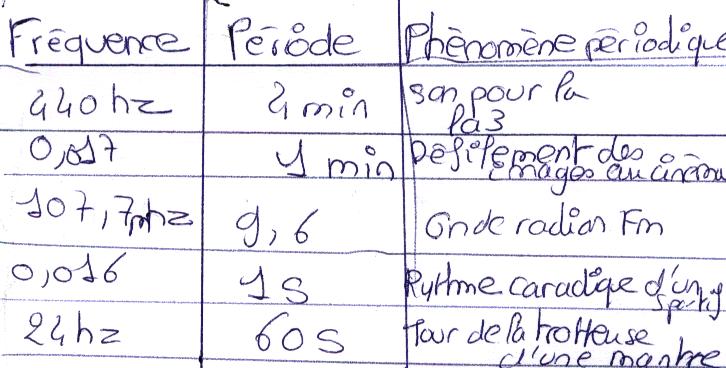 Fréquence Période Phènomène pèriodique
440hz 4 min son pour la
la3
0,017 1 min Défilement des
images au cinéma
107,7mhz 9,6 Onde radion Fm
0,016 1s Rythme caradiqe d'un
sportif
24hz 60s tour de la trotteuse
d'une montre